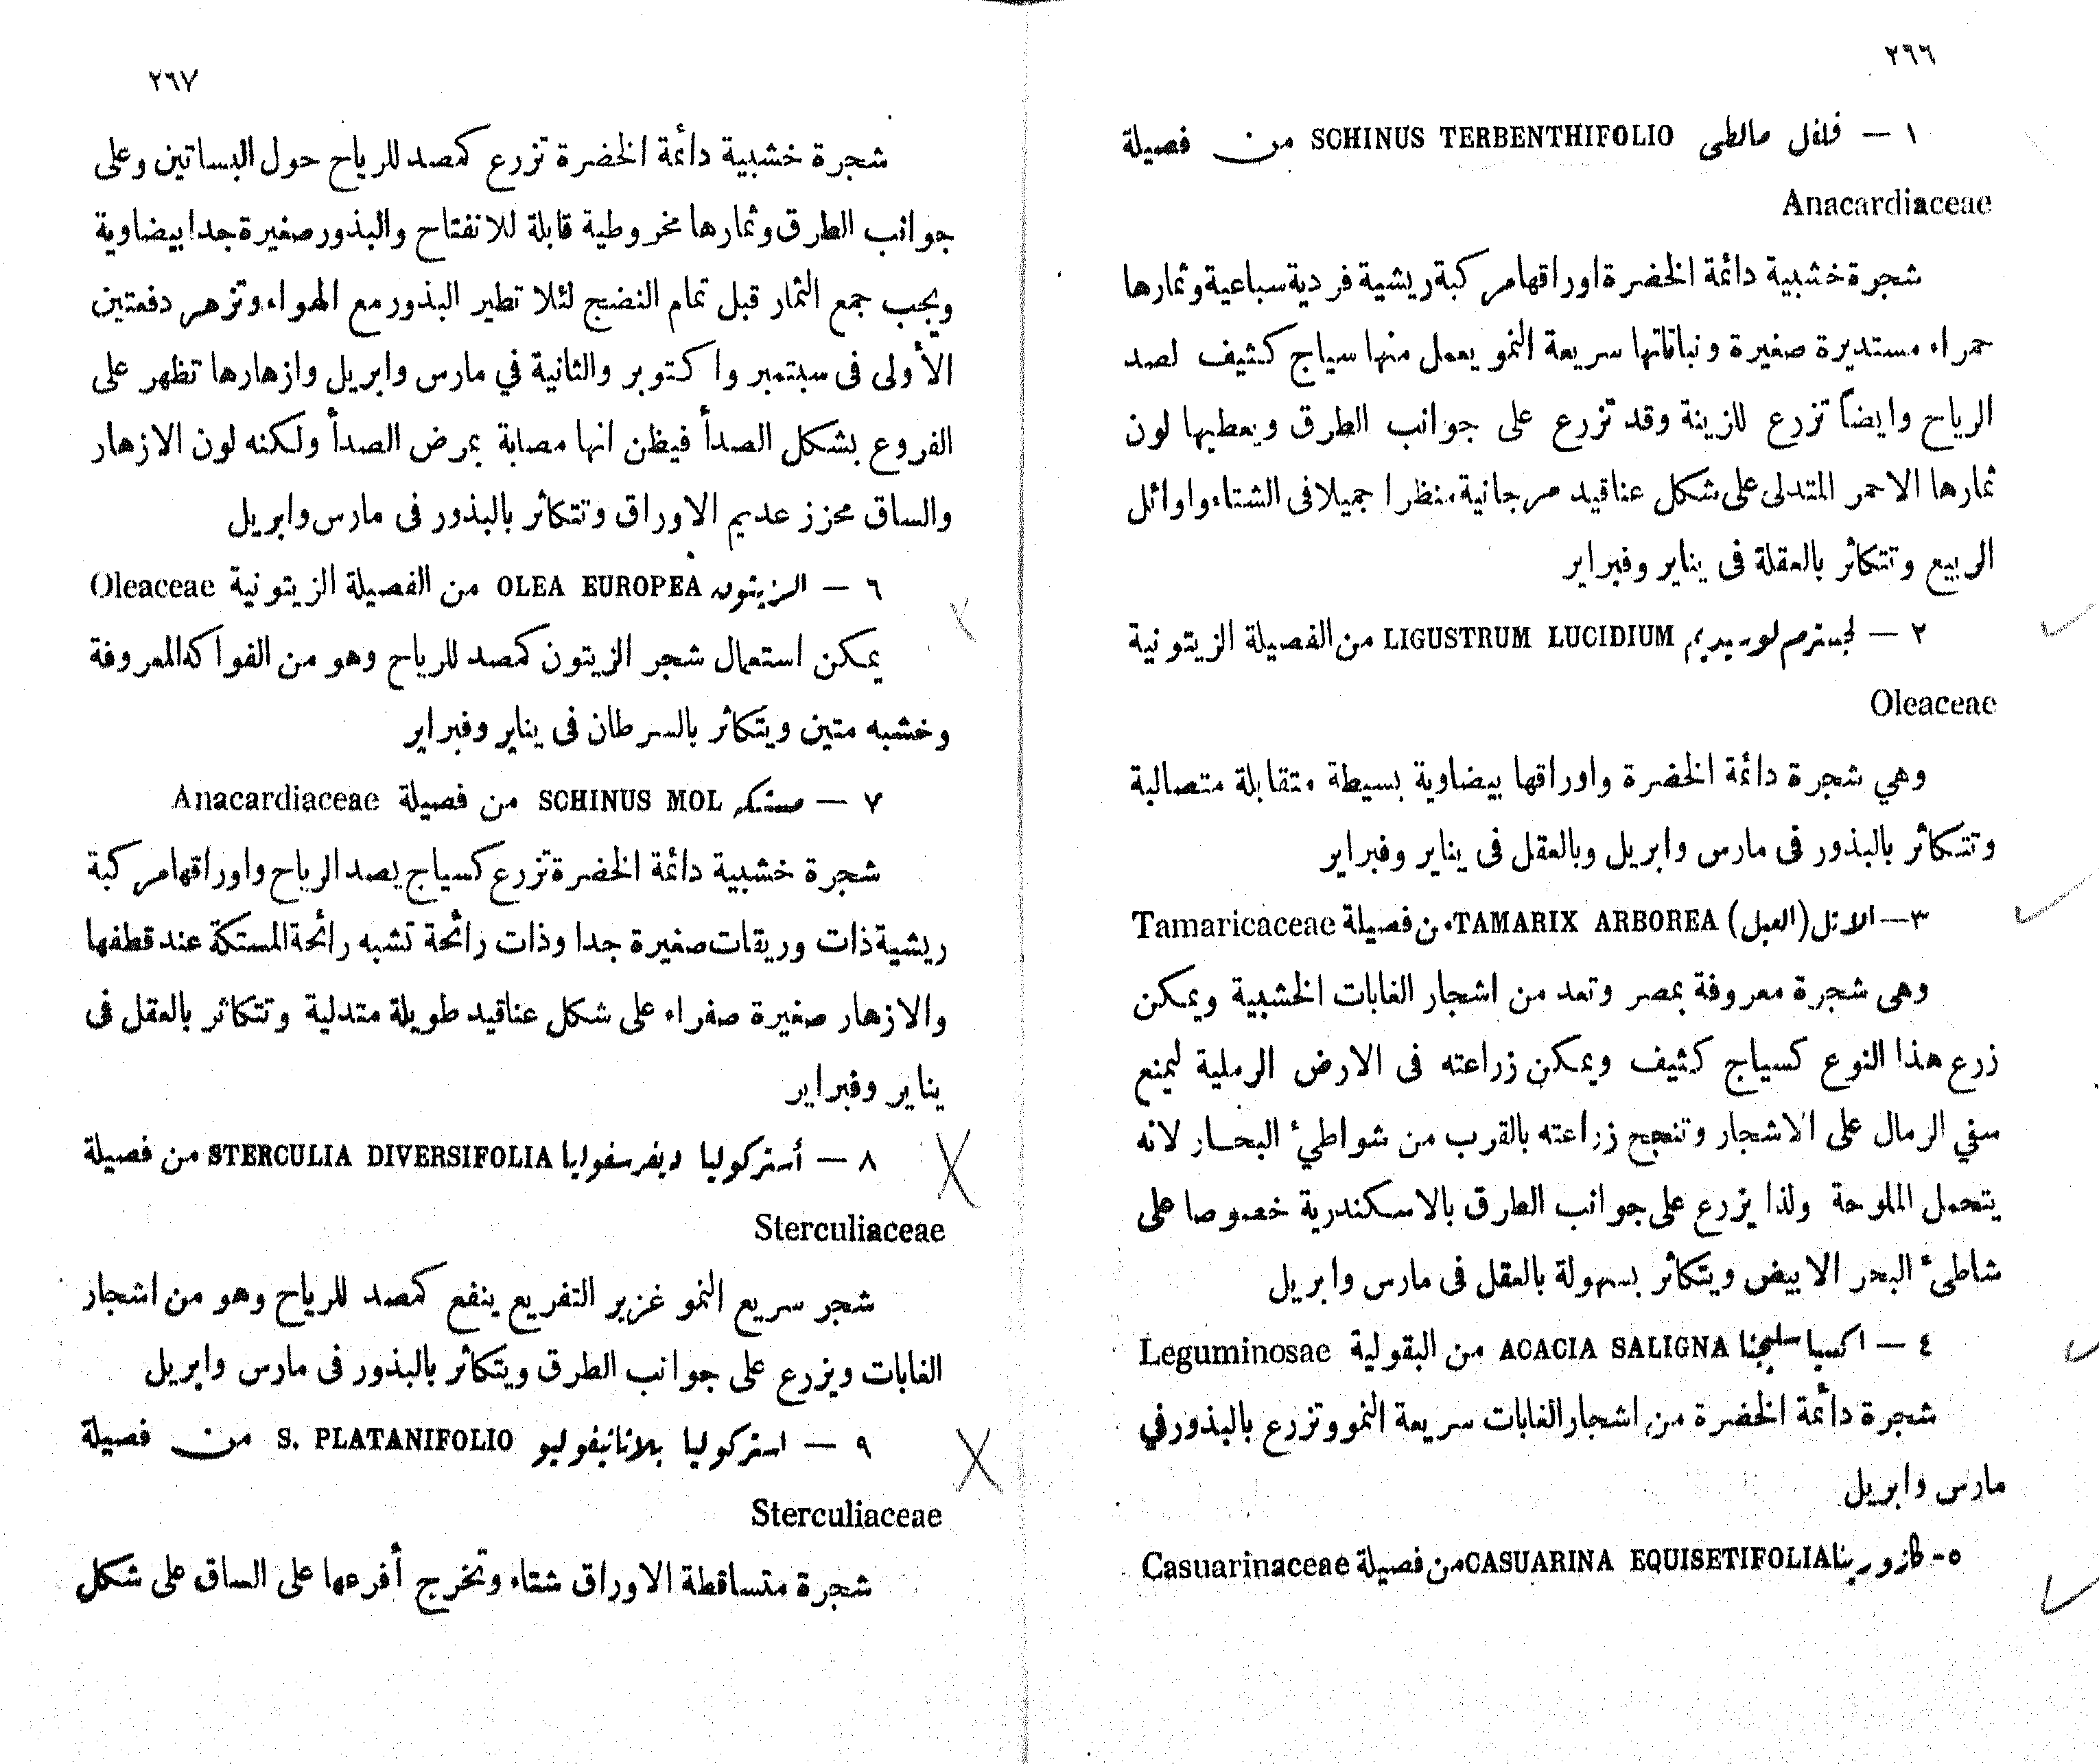 ٢٦٦
١ — فلفل مالطى SCHINUS TERBENTHIFOLIO من فصيلة
Anacardiaceae
شجرة خشبية دائمة الخضرة اوراقها مركبة ريشية فردية سباعية وثمارها
حمراء مستديرة صغيرة ونباتاتها سريعة النمو يعمل منها سياج كثيف لصد
الرياح وايضاً تزرع للزينة وقد تزرع على جوانب الطرق ويعطيها لون
ثمارها الاحمر المتدلى على شكل عناقيد مرجانية منظرا جميلا فى الشتاء واوائل
الربيع وتتكاثر بالعقلة فى يناير وفبراير
٢ — لجسترم لوسيديم LIGUSTRUM LUCIDIUM من الفصيلة الزيتونية
Oleaceae
وهي شجرة دائمة الخضرة واوراقها بيضاوية بسيطة متقابلة متصالبة
وتتكاثر بالبذور فى مارس وابريل وبالعقل فى يناير وفبراير
٣— الاثل (العبل) TAMARIX ARBOREA من فصيلة Tamaricaceae
وهى شجرة معروفة بمصر وتعد من اشجار الغابات الخشبية ويمكن
زرع هذا النوع كسياج كثيف ويمكن زراعته فى الارض الرملية ليمنع
سفي الرمال على الاشجار وتنجح زراعته بالقرب من شواطيء البحار لانه
يتحمل الملوحة ولذا يزرع على جوانب الطرق بالاسكندرية خصوصا على
شاطىء البحر الابيض ويتكاثر بسهولة بالعقل فى مارس وابريل
٤ — اكسيا سليجنا ACACIA SALIGNA من البقولية Leguminosae
شجرة دائمة الخضرة من اشجار الغابات سريعة النمو وتزرع بالبذور في
مارس وابريل
٥- كازورينا CASUARINA EQUISETIFOLIA من فصيلة Casuarinaceae
٢٦٧
شجرة خشبية دائمة الخضرة تزرع كمصد للرياح حول البساتين وعلى
جوانب الطرق وثمارها مخروطية قابلة للانفتاح والبذور صغيرة جدا بيضاوية
ويجب جمع الثمار قبل تمام النضج لئلا تطير البذور مع الهواء وتزهر دفعتين
الأولى فى سبتمبر واكتوبر والثانية في مارس وابريل وازهارها تظهر على
الفروع بشكل الصدأ فيظن انها مصابة بمرض الصدأ ولكنه لون الازهار
والساق محزز عديم الاوراق وتتكاثر بالبذور فى مارس وابريل
٦ — الزيتون OLEA EUROPEA من الفصيلة الزيتونية Oleaceae
يمكن استعمال شجر الزيتون كمصد للرياح وهو من الفواكه المعروفة
وخشبه متين ويتكاثر بالسرطان فى يناير وفبراير
٧ — مستكه SCHINUS MOL من فصيلة Anacardiaceae
شجرة خشبية دائمة الخضرة تزرع كسياج يصد الرياح واوراقها مركبة
ريشية ذات وريقات صغيرة جدا وذات رائحة تشبه رائحة المستكة عند قطفها
والازهار صغيرة صفراء على شكل عناقيد طويلة متدلية وتتكاثر بالعقل فى
يناير وفبراير
٨ — أستركوليا ديفرسفوليا STERCULIA DIVERSIFOLIA من فصيلة
Sterculiaceae
شجر سريع النمو غزير التفريع ينفع كمصد للرياح وهو من اشجار
الغابات ويزرع على جوانب الطرق ويتكاثر بالبذور فى مارس وابريل
٩ — استركوليا بلاتانيفوليو S. PLATANIFOLIO من فصيلة
Sterculiaceae
شجرة متساقطة الاوراق شتاء وتخرج أفرعها على الساق على شكل